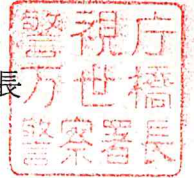 長
警視庁
万世橋
警察署長